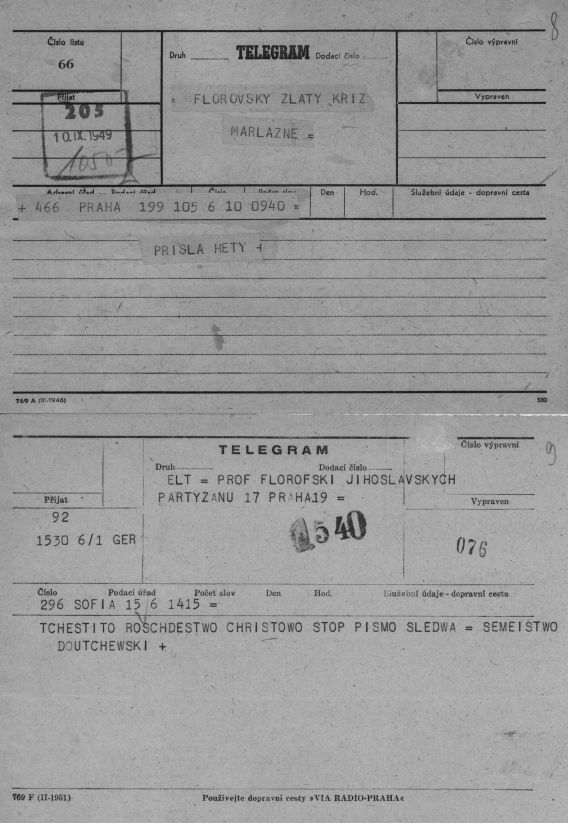 8
Číslo listu
66
Druh TELEGRAM Dodací číslo
Číslo výpravní
Přijat
205
10.IX.1949
1050
= FLOROVSKY ZLATY KRIZ
MARLAZNE =
Vypraven
Adresní úřad — Podací úřad Číslo Počet slov Den Hod. Služební údaje - dopravní cesta
+ 466 PRAHA 199 105 6 10 0940 =
PRISLA HETY +
769 A (II-1946) 580
9
TELEGRAM
Číslo výpravní
Druh Dodací číslo
ELT = PROF FLOROFSKI JIHOSLAVSKYCH
PARTYZANU 17 PRAHA19 =
Přijat
Vypraven
92
1530 6/1 GER
1540
076
Číslo Podací úřad Počet slov Den Hod. Služební údaje - dopravní cesta
296 SOFIA 15 6 1415 =
TCHESTITO ROSCHDESTWO CHRISTOWO STOP PISMO SLEDWA = SEMEISTWO
DOUTCHEWSKI +
769 F (II-1951) Používejte dopravní cesty »VIA RADIO-PRAHA«